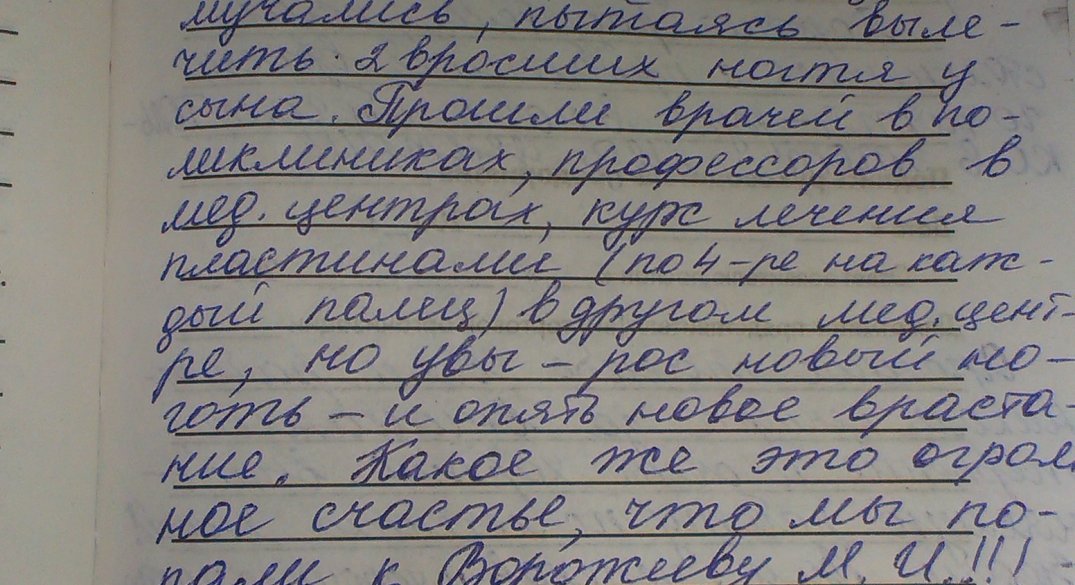 мучались, пытаясь выле-
чить 2 вросших ногтя у
сына. Прошли врачей в по-
ликлиниках, профессоров в
мед. центрах, курс лечения
пластинами (по 4-ре на каж-
дый палец) в другом мед. цент-
ре, но увы – рос новый но-
готь – и опять новое враста-
ние. Какое же это огром
ное счастье, что мы по-
пали к Ворожцеву М. И.!!!